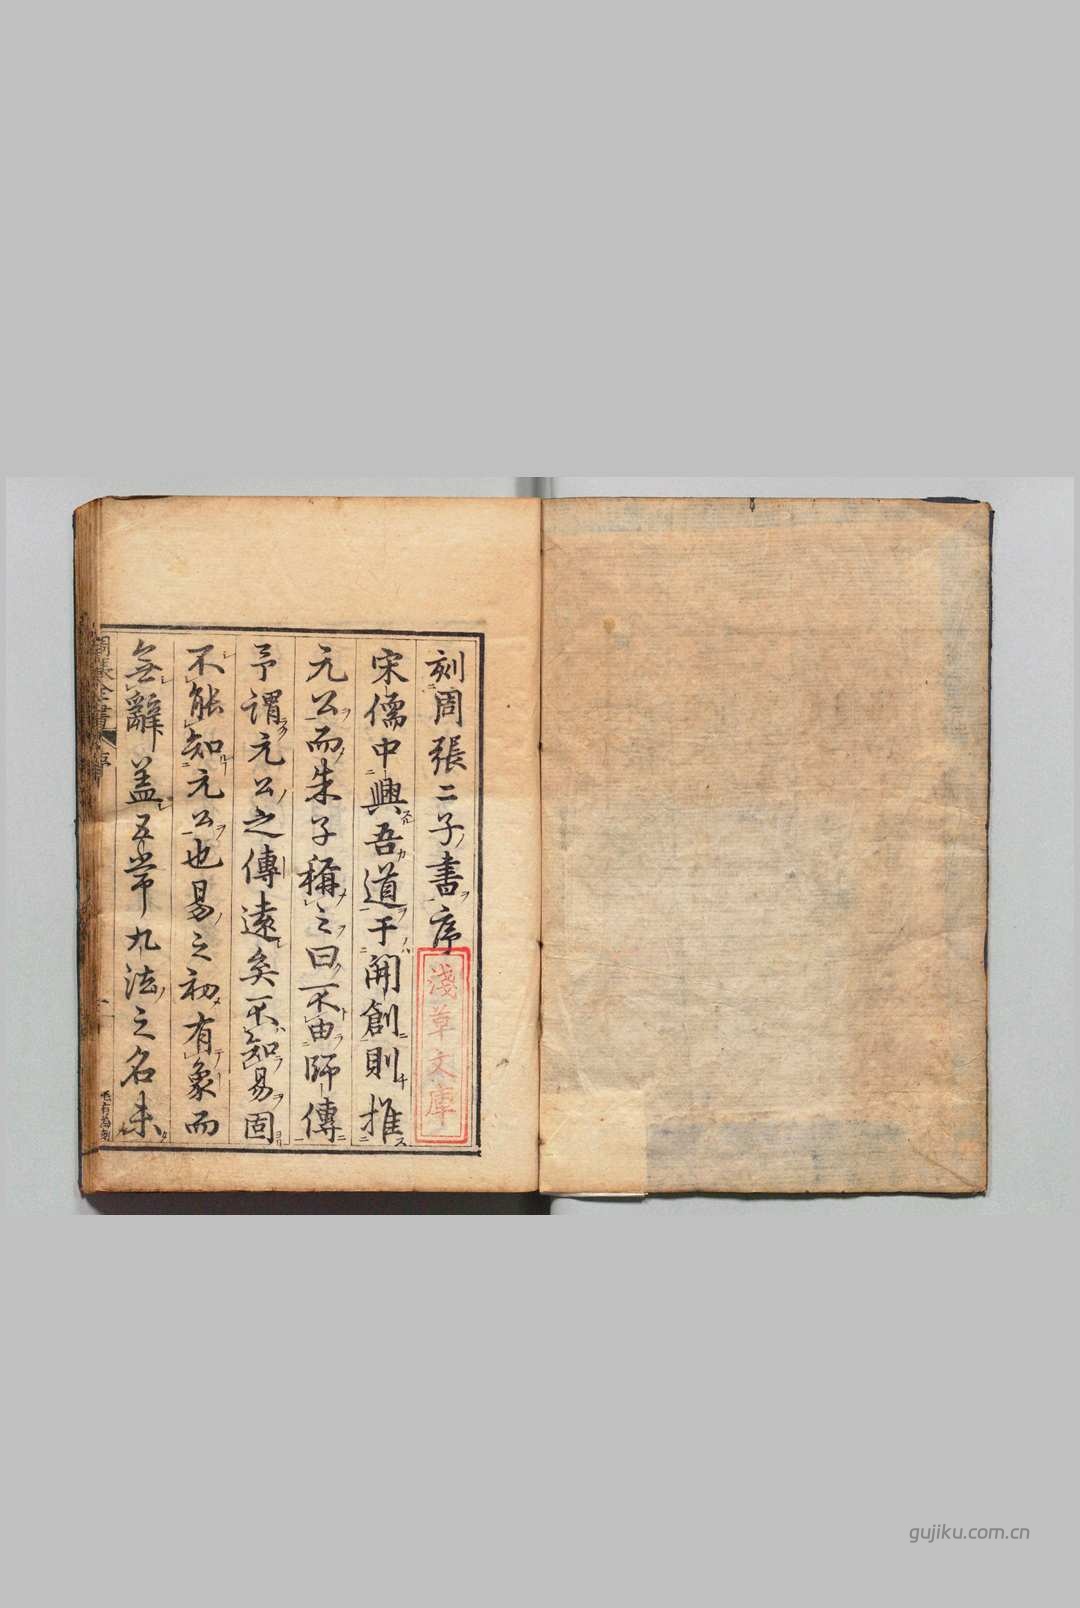 刻周張二子書序
宋儒中興吾道于開創則推
元公而朱子稱之曰不由師傳
予謂元公之傳遠矣不知易固
不能知元公也易之初有象而
無辭盖五常九法之名未
周張全書
序
淺草文庫
gujiku.com.cn